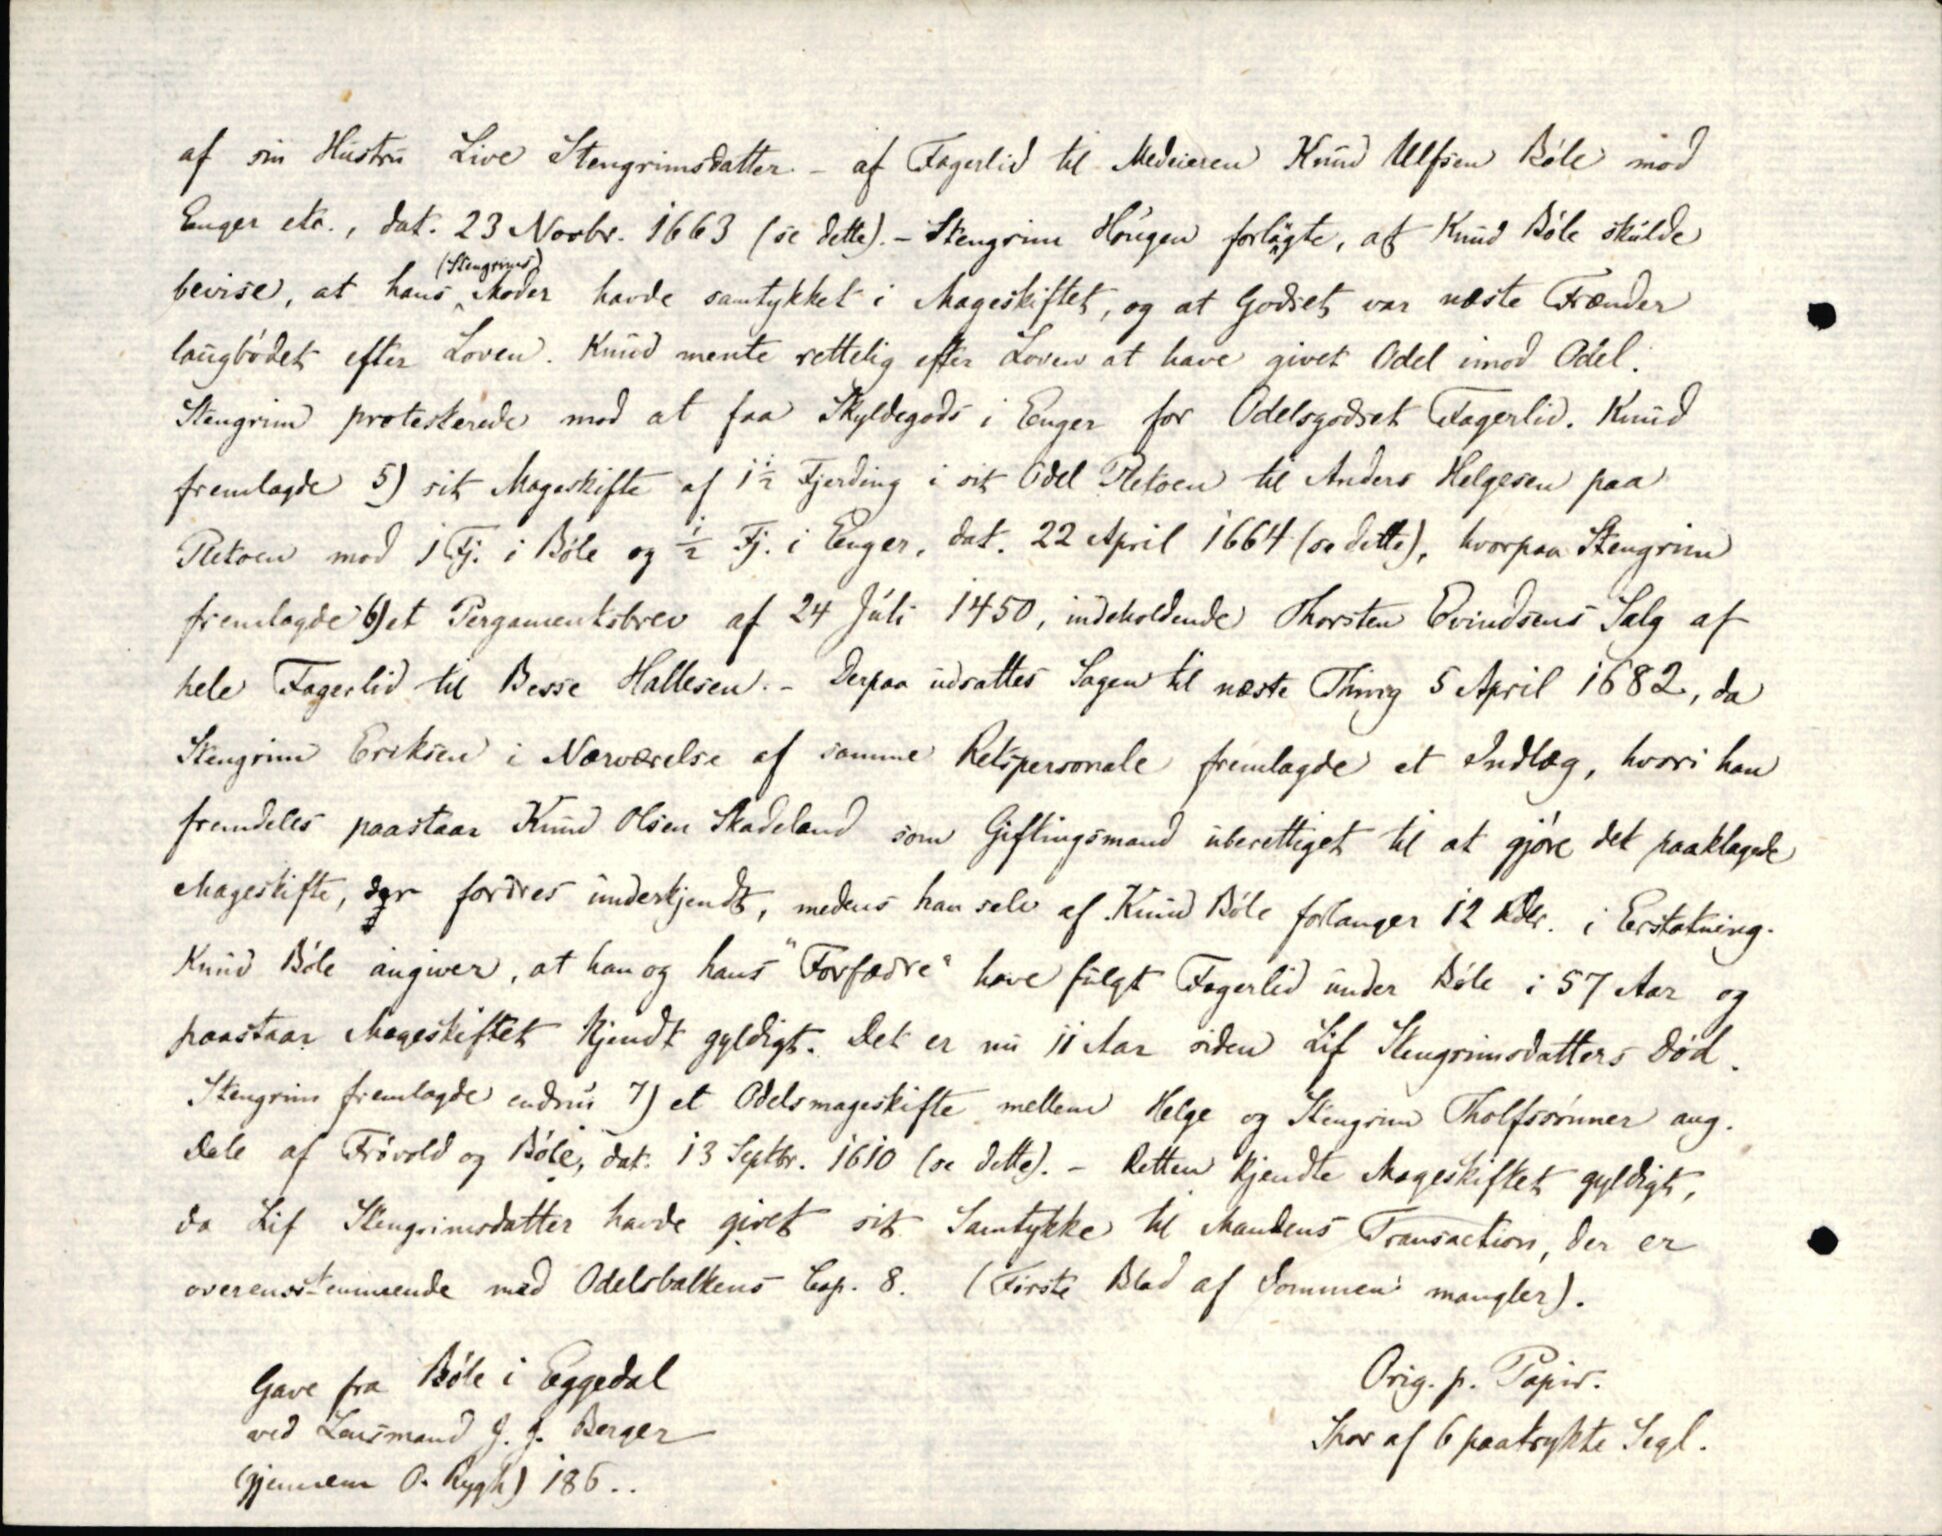 af sin Hustru Live Stengrimsdatter. – af Fagerlid til Medeieren Knud Ulfsen Bøle mod
Enger etc., dat. 23 Novbr. 1663 (se dette). – Stengrim Hougen forlagte, at Knud Bøle skulde
bevise, at hans (Stengrims) Moder havde samtykket i Mageskiftet, og at Godset var næste Frænder
laugbødet efter Loven. Knud mente rettelig efter Loven at have givet Odel imod Odel.
Stengrim protesterede mod at faa Skyldegods i Enger for Odelsgodset Fagerlid. Knud
fremlagde 5) sit Mageskifte af 1½ Fjerding i sit Odel Pletoen til Anders Helgesen paa
Pletoen mod 1 Fj. i Bøle og ½ Fj. i Enger, dat. 22 April 1664 (se dette), hvorpaa Stengrim
fremlagde 6) et Pergamentsbrev af 24 Juli 1450, indeholdende Thorsten Evindsens Salg af
hele Fagerlid til Besse Hallesen. – Derpaa udsattes Sagen til næste Thing 5 April 1682, da
Stengrim Eriksen i Nærværelse af samme Retspersonale fremlagde et Indlæg, hvori han
fremdeles paastaar Knud Olsen Skadeland som Giftingsmand uberettiget til at gjøre det paaklagede
Mageskifte, der fordres underkjendt, medens han selv af Knud Bøle forlanger 12 Rdlr. i Erstatning.
Knud Bøle angiver, at han og hans "Forfædre" have fulgt Fagerlid under Bøle i 57 Aar og
paastaar Mageskiftet kjendt gyldigt. Det er nu 11 Aar siden Lif Stengrimsdatters Død.
Stengrim fremlagde endnu 7) et Odelsmageskifte mellem Helge og Stengrim Tholfssønner ang.
Dele af Frøvold og Bøle, dat. 13 Septbr. 1610 (se dette). – Retten kjendte Mageskiftet gyldigt,
da Lif Stengrimsdatter havde givet sit Samtykke til Mandens Transaction, der er
overensstemmende med Odelsbalkens Cap. 8. (Første Blad af Dommen mangler).
Gave fra Bøle i Eggedal
ved Lensmand J. J. Berger
(gjennem O. Rygh) 186..
Orig. p. Papir.
Spor af 6 paatrykte Segl.